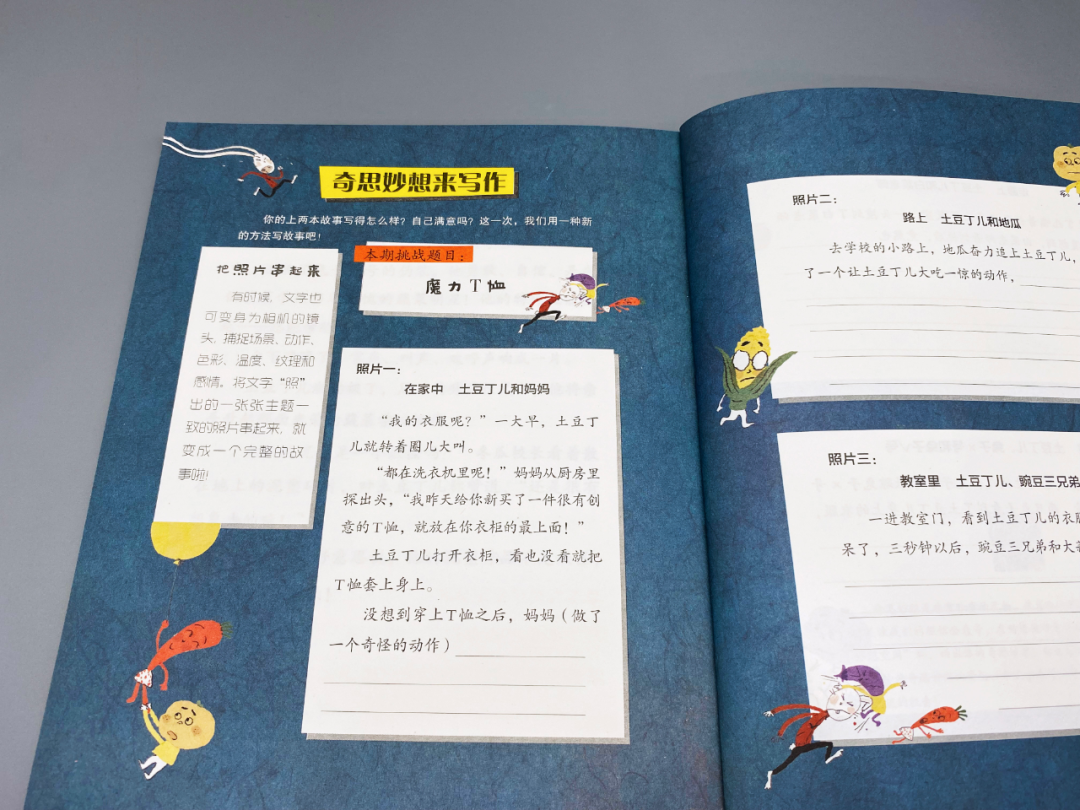 奇思妙想来写作
你的上两本故事写得怎么样？自己满意吗？这一次，我们用一种新
的方法写故事吧！
把照片串起来
有时候，文字也
可变身为相机的镜
头，捕捉场景、动作、
色彩、温度、纹理和
感情。将文字“照”
出的一张张主题一
致的照片串起来，就
变成一个完整的故
事啦！
本期挑战题目：
魔力T恤
照片一：
在家中 土豆丁儿和妈妈
“我的衣服呢？”一大早，土豆丁
儿就转着圈儿大叫。
“都在洗衣机里呢！”妈妈从厨房里
探出头，“我昨天给你新买了一件很有创
意的T恤，就放在你衣柜的最上面！”
土豆丁儿打开衣柜，看也没看就把
T恤套上身上。
没想到穿上T恤之后，妈妈（做了
一个奇怪的动作）
照片二：
路上 土豆丁儿和地瓜
去学校的小路上，地瓜奋力追上土豆丁儿，
了一个让土豆丁儿大吃一惊的动作，
照片三：
教室里 土豆丁儿、豌豆三兄弟
一进教室门，看到土豆丁儿的衣服
呆了，三秒钟以后，豌豆三兄弟和大